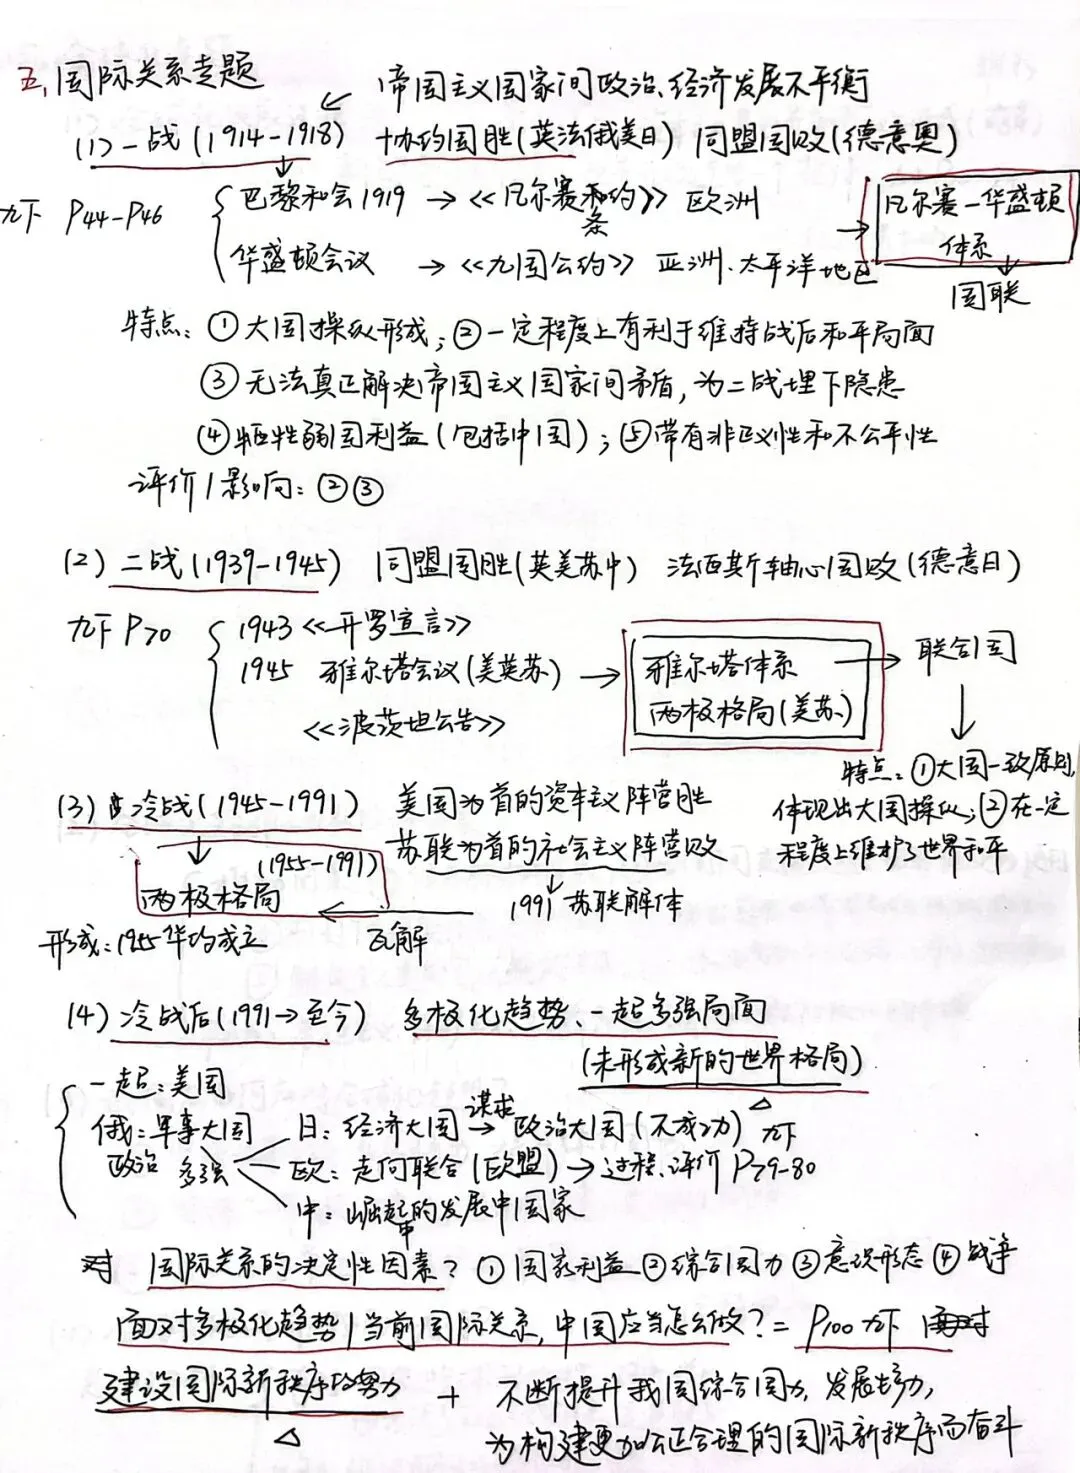 五、国际关系专题
帝国主义国家间政治、经济发展不平衡
(1)一战(1914-1918) 协约国胜(英法俄美日) 同盟国败(德意奥)
九下 P44-P46
巴黎和会1919 → 《凡尔赛条约》 欧洲
华盛顿会议 → 《九国公约》 亚洲、太平洋地区
→ 凡尔赛-华盛顿体系
国联
特点:①大国操纵形成;②一定程度上有利于维持战后和平局面
③无法真正解决帝国主义国家间矛盾,为二战埋下隐患
④牺牲弱国利益(包括中国);⑤带有非正义性和不公平性
评价/影响:②③
(2)二战(1939-1945) 同盟国胜(英美苏中) 法西斯轴心国败(德意日)
九下 P70
1943《开罗宣言》
1945 雅尔塔会议(美英苏) →
《波茨坦公告》
雅尔塔体系 → 联合国
两极格局(美苏)
特点:①大国一致原则,
体现出大国操纵;②在一定
程度上维护了世界和平
(3)冷战(1945-1991) 美国为首的资本主义阵营胜
苏联为首的社会主义阵营败
(1955-1991)
两极格局 ← 1991苏联解体
形成:1955华约成立 瓦解
(4)冷战后(1991→至今) 多极化趋势、一超多强局面
(未形成新的世界格局)
一超:美国
俄:军事大国
政治 多强
日:经济大国 谋求→ 政治大国(不成功) 九下
欧:走向联合(欧盟)→过程、评价 P79-80
中:崛起中的发展中国家
对 国际关系的决定性因素?①国家利益②综合国力③意识形态④战争
面对多极化趋势/当前国际关系,中国应当怎么做?= P100 九下
建设国际新秩序的努力 + 不断提升我国综合国力,发展经济,
为构建更加公正合理的国际新秩序而奋斗